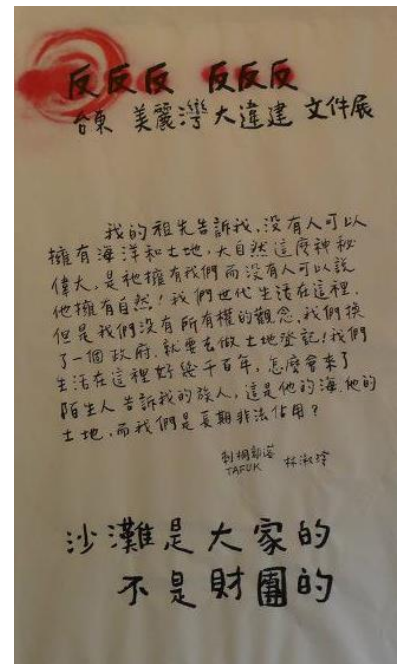 反反反 反反反
台東 美麗灣大違建 文件展
我的祖先告訴我,沒有人可以
擁有海洋和土地,大自然這麼神秘
偉大,是祂擁有我們而沒有人可以說
他擁有自然!我們世代生活在這裡,
但是我們沒有所有權的觀念,我們換
了一個政府,就要去做土地登記!我們
生活在這裡好幾千百年,怎麼會來了
陌生人告訴我的族人,這是他的海,他的
土地,而我們是長期非法佔用?
刺桐部落
TAFUK 林淑玲
沙灘是大家的
不是財團的